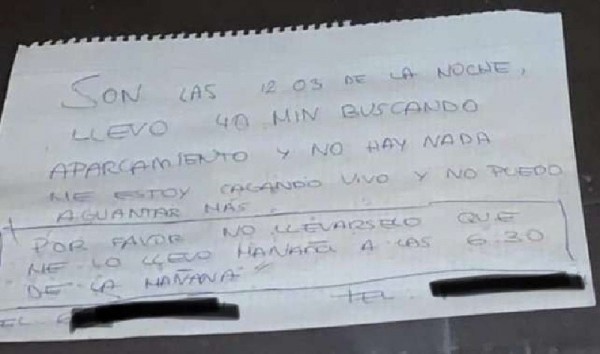 SON LAS 12 03 DE LA NOCHE,
LLEVO 40 MIN BUSCANDO
APARCAMIENTO Y NO HAY NADA
ME ESTOY CAGANDO VIVO Y NO PUEDO
AGUANTAR MÁS.
POR FAVOR NO LLEVARSELO QUE
ME LO LLEVO MAÑANA A LAS 6.30
DE LA MAÑANA
TEL.